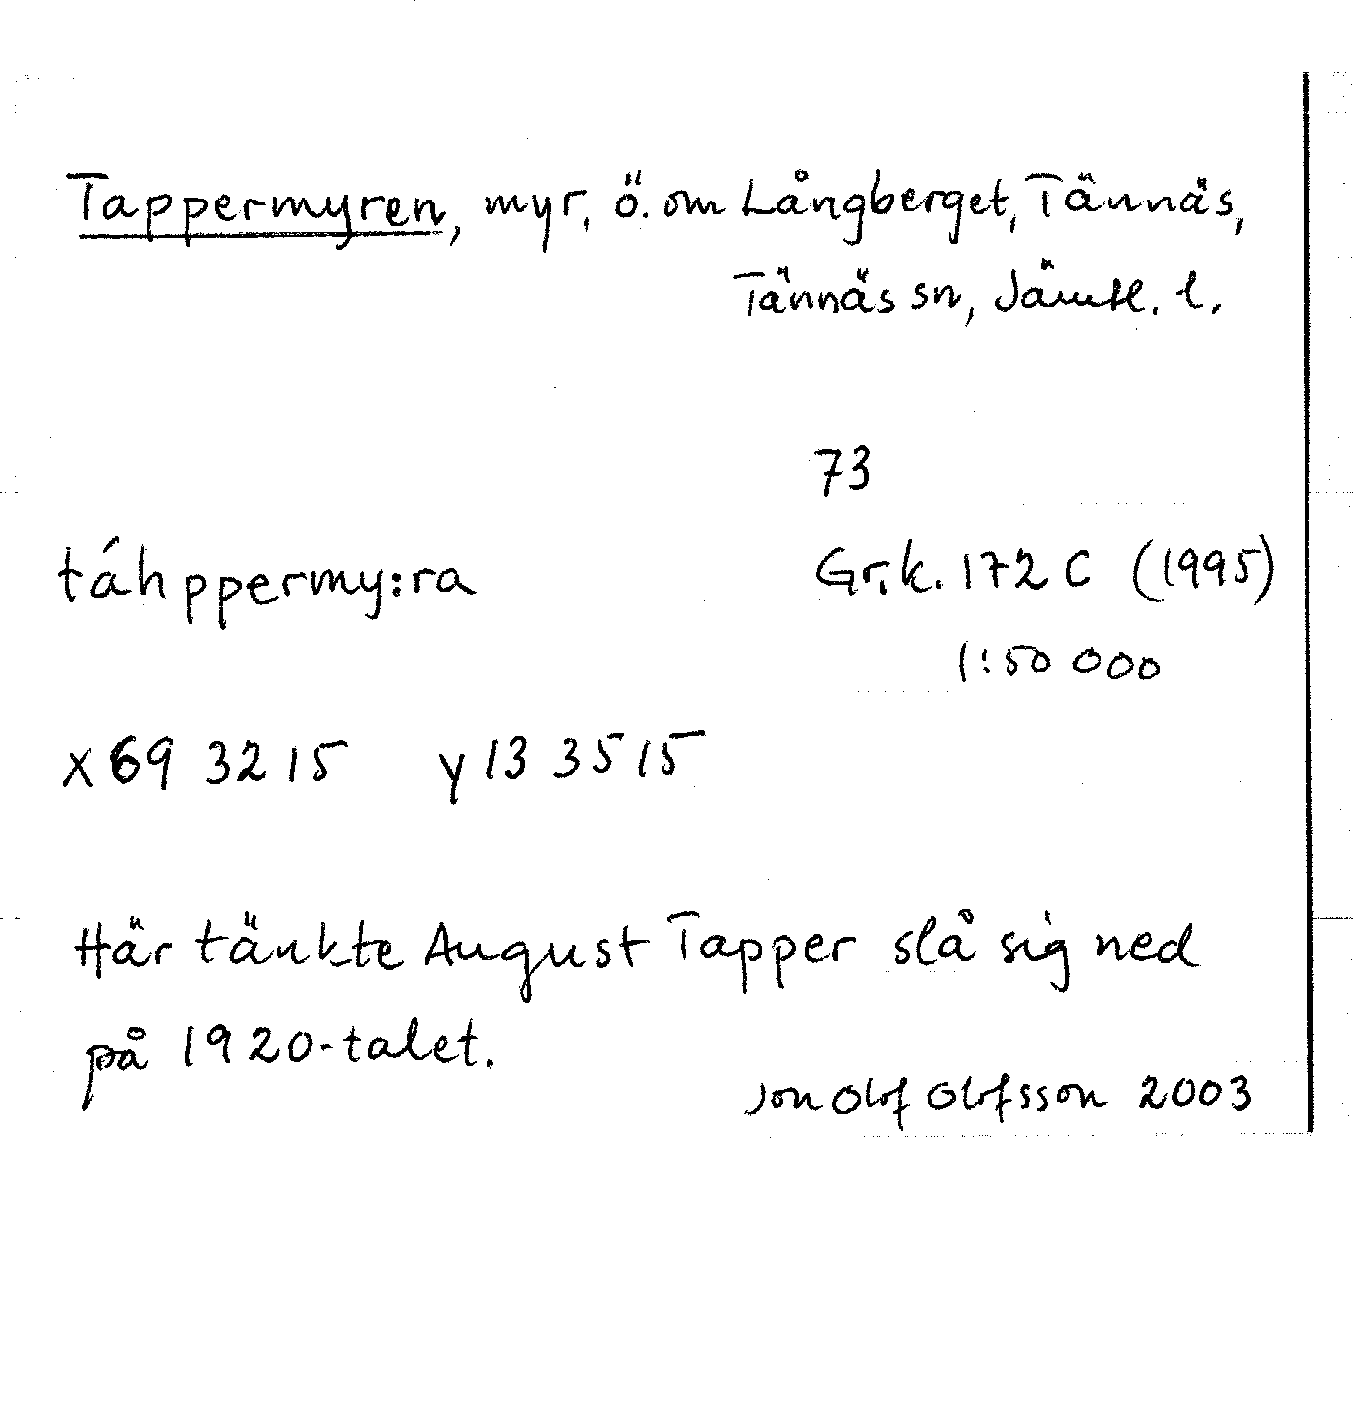 Tappermyren, myr, ö. om Långberget, Tännäs,
Tännäs sn, Jämtl. l.
73
táhppermy:ra
Gr.k. 172 C (1995)
1:50 000
x 69 32 15 y 13 35 15
Här tänkte August Tapper slå sig ned
på 1920-talet.
Jon Olof Olofsson 2003